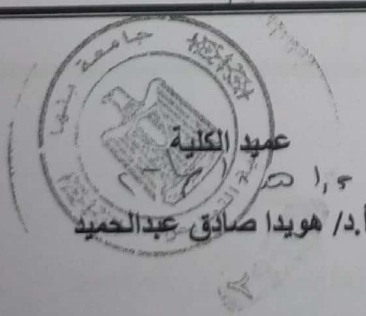 جامعة بنها
عميد الكلية
أ.د/ هويدا صادق عبدالحميد